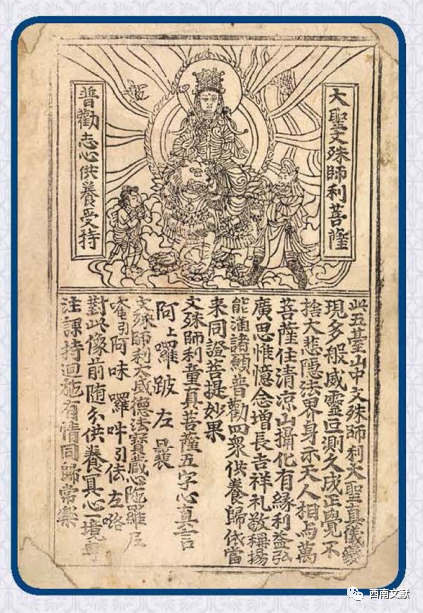 大聖文殊師利菩薩
普勸志心供養受持
此五臺山中文殊師利大聖真儀變
現多般威靈叵測久成正覺不
捨大悲隱法界身示天人相与萬
菩薩住清涼山攝化有緣利益弘
廣思惟憶念增長吉祥礼敬稱揚
能滿諸願普勸四衆供養歸依當
來同證菩提妙果
文殊師利童真菩薩五字心真言
阿上囉跛左曩
文殊師利大威德法寶藏心陀羅尼
唵引阿味囉吽引佉左咯
對此像前隨分供養冥心一境專
注課持迴施有情同歸常樂
西南文献